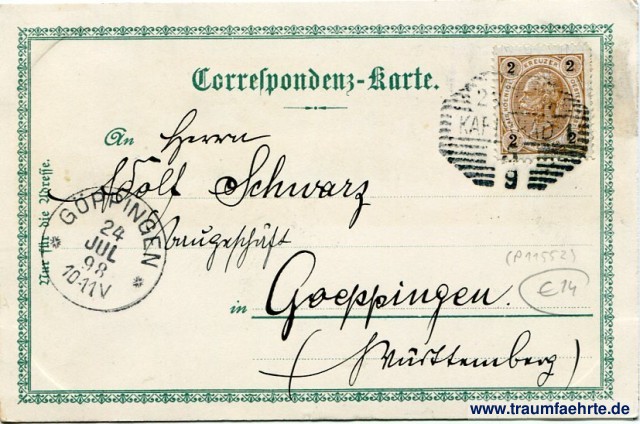 Correspondenz-Karte.
2 KREUZER 2
2 2
KAR
9
An Herrn
Adolf Schwarz
Baugeschäft
in Goeppingen.
(Württemberg)
Nur für die Adresse.
GÖPPINGEN
24
JUL
98
10-11V
(P11552)
€14
www.traumfaehrte.de